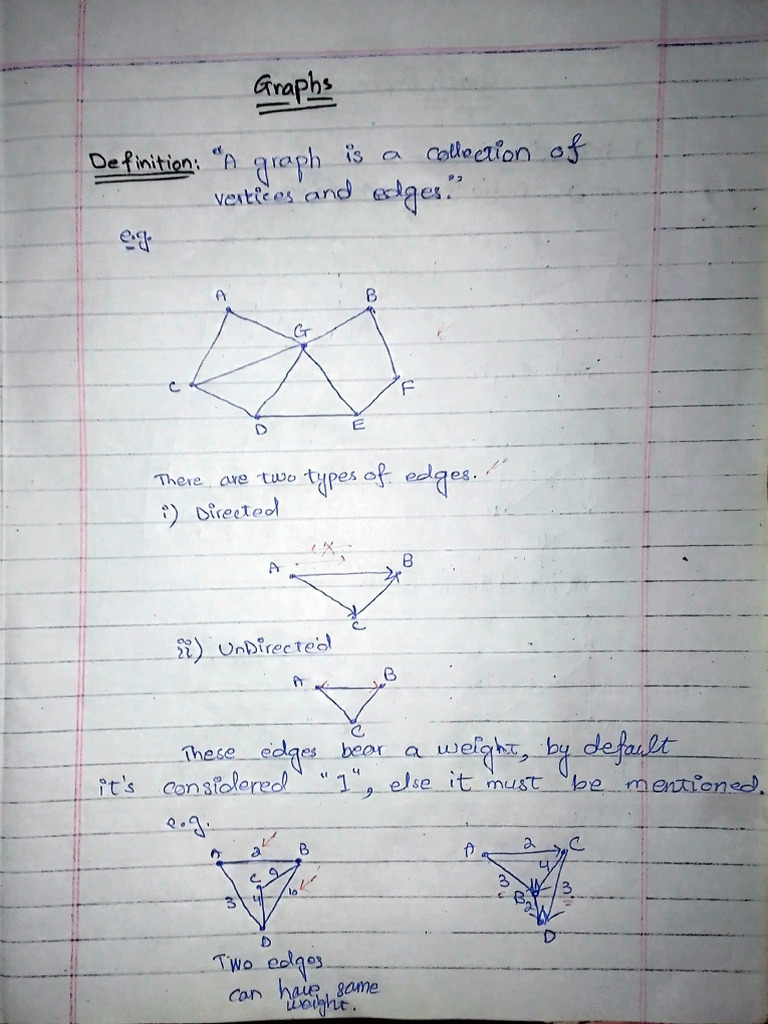 Graphs
Definition: "A graph is a collection of
vertices and edges."
e.g.
A B
G
C F
D E
There are two types of edges.
i) Directed
A B
C
ii) UnDirected
A B
C
These edges bear a weight, by default
it's considered "1", else it must be mentioned.
e.g.
A 2 B
C 9
3 4 10
D
A 2 C
4
3 B 2 3
D
Two edges
can have same
weight.